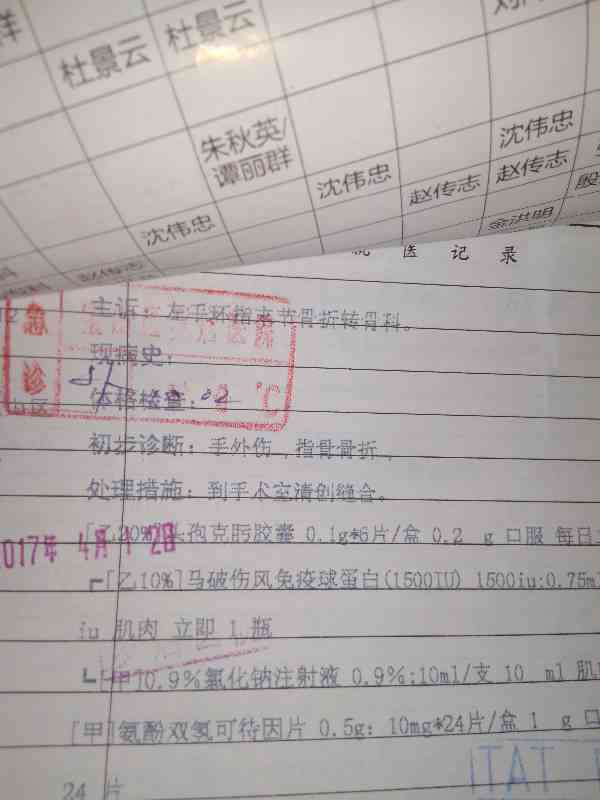 杜景云
杜景云
朱秋英/
谭丽群
沈伟忠
沈伟忠
赵传志
沈伟忠
赵传志
金洪明
医记录
急诊
℃
主诉：左手环指末节骨折转骨科。
现病史：
体格检查：
初步诊断：手外伤，指骨骨折，
处理措施：到手术室清创缝合。
2017年 4月12日
[乙20%]头孢克肟胶囊 0.1g*6片/盒 0.2 g 口服 每日
[乙10%]马破伤风免疫球蛋白(1500IU) 1500iu:0.75m
iu 肌肉 立即 1 瓶
[甲]0.9%氯化钠注射液 0.9%:10ml/支 10 ml 肌
[甲]氨酚双氢可待因片 0.5g: 10mg*24片/盒 1 g 口
24 片